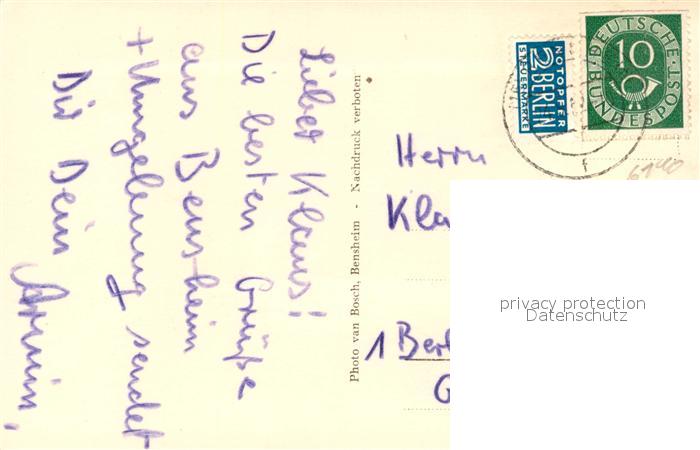 Lieber Klaus!
Die besten Grüße
aus Bensheim
+ Umgebung sendet
Dir Dein Armin,
Photo van Bosch, Bensheim - Nachdruck verboten
NOTOPFER
2 BERLIN
STEUERMARKE
DEUTSCHE
10
BUNDESPOST
Herrn
Kla
1 Berl
G
6140
privacy protection
Datenschutz